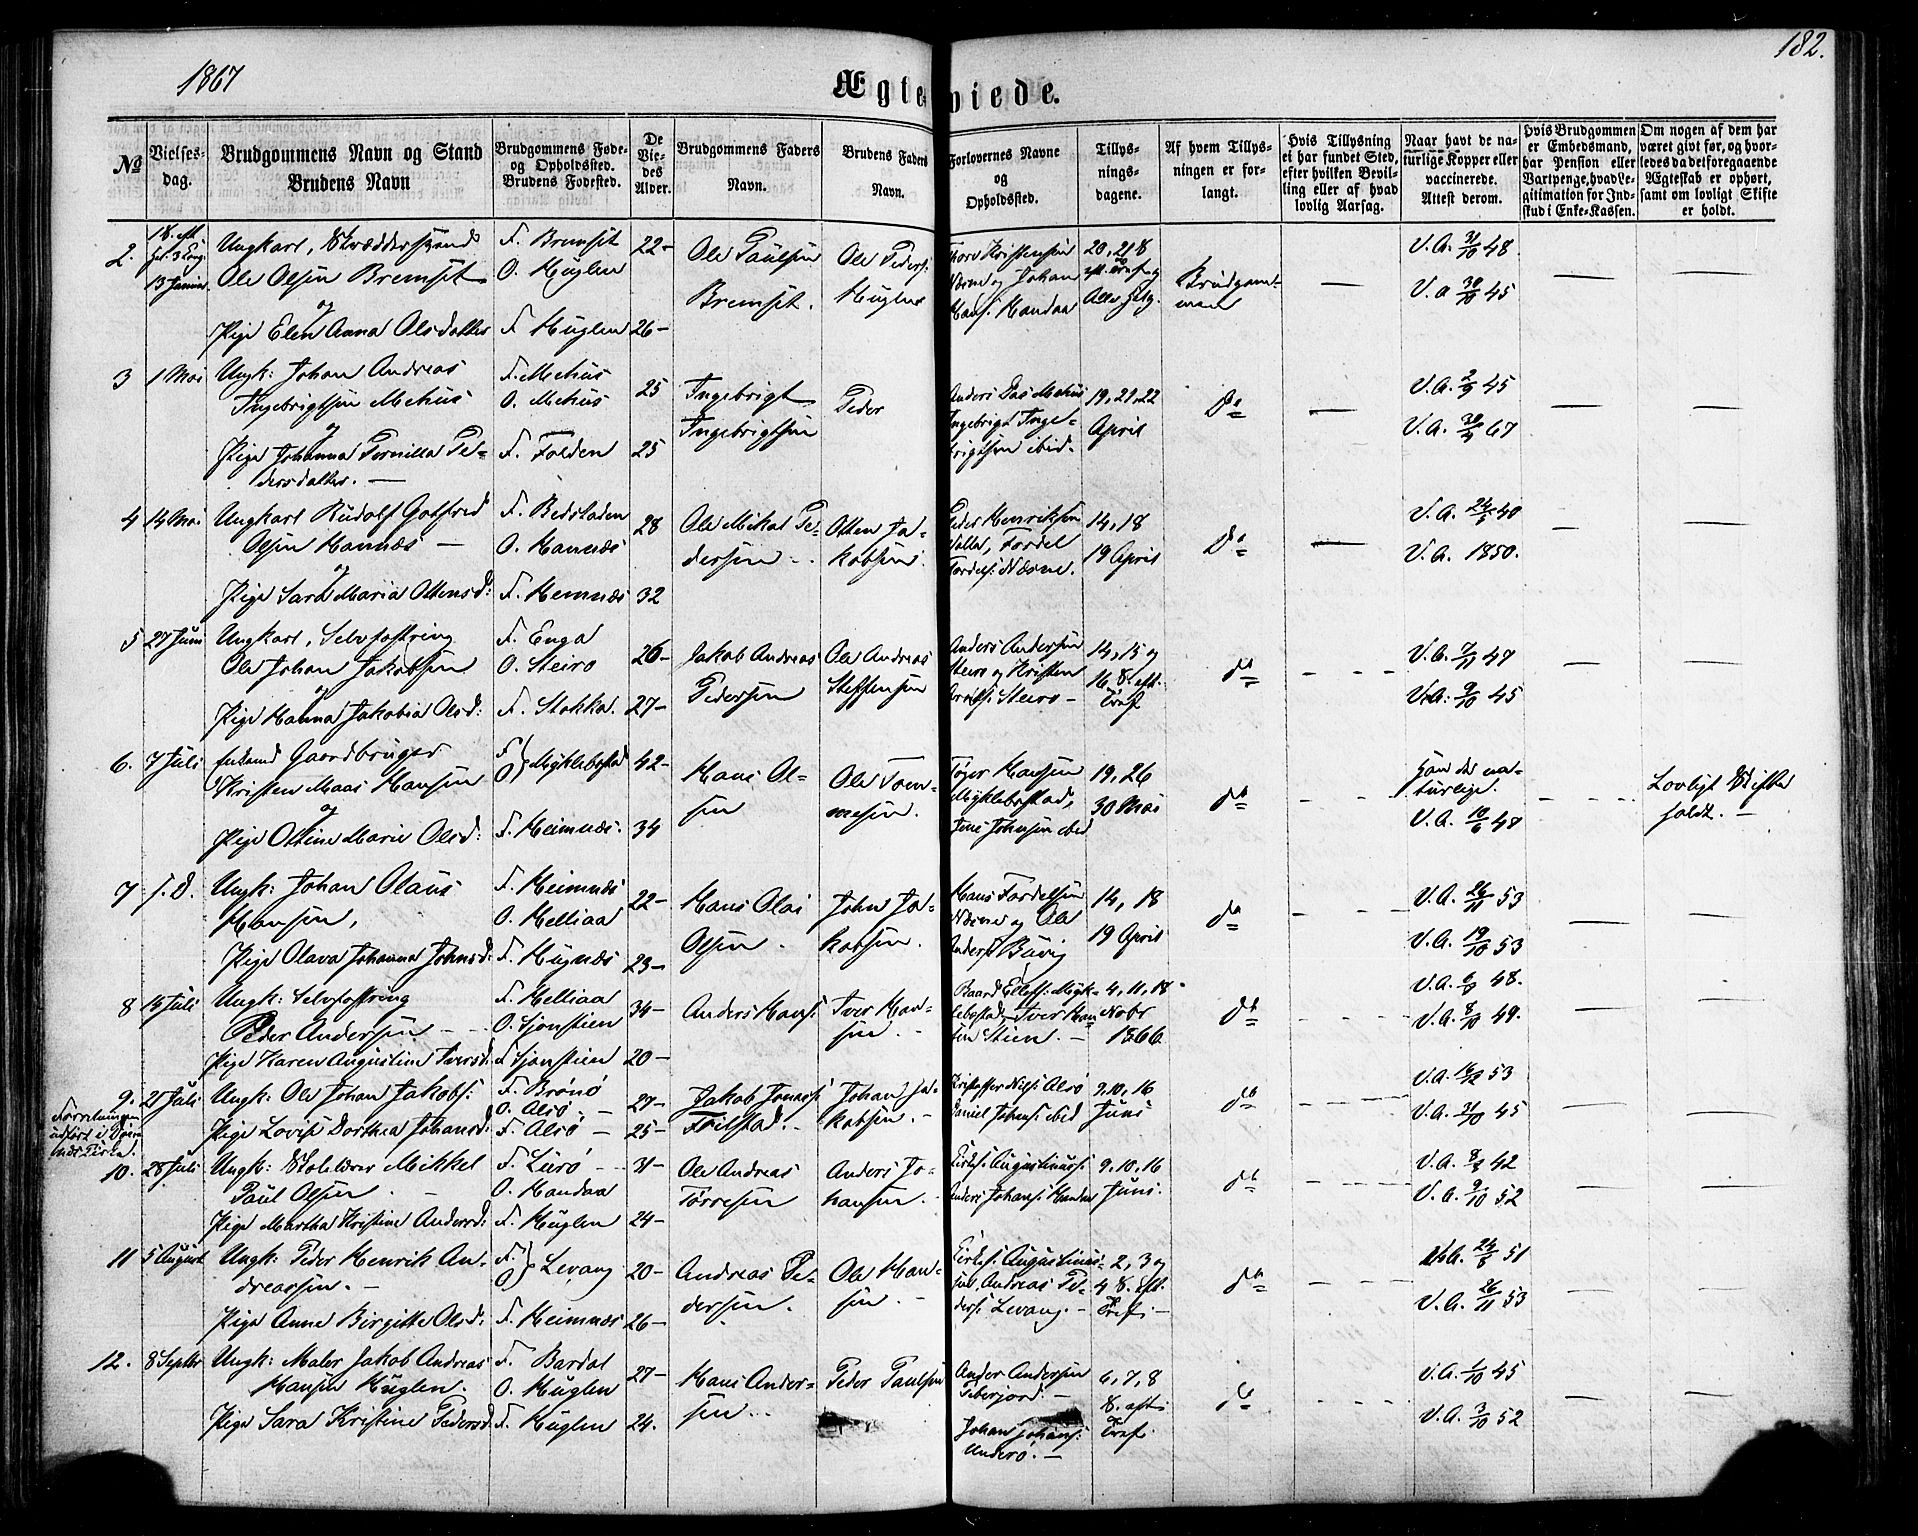 1867
Ægteviede.
182.
№
Vielses-dag.
Brudgommens Navn og Stand
Brudens Navn
Brudgommens Føde- og Opholdssted.
Brudens Fødested.
De Vie-des Alder.
Brudgommens Faders Navn.
Brudens Faders Navn.
Forlovernes Navne og Opholdssted.
Tillys-nings-dagene.
Af hvem Tillys-ningen er for-langt.
Hvis Tillysning ei har fundet Sted, efter hvilken Bevil-ling eller af hvad lovlig Aarsag.
Naar havt de na-turlige Kopper eller vaccinerede. Attest derom.
Hvis Brudgommen er Embedsmand, har Pension eller Vartpenge, hvad Le-gitimation for Ind-skud i Enke-Kassen.
Om nogen af dem har været givt før, og hvor-ledes da det foregaaende Ægteskab er ophørt, samt om lovligt Skifte er holdt.
2.
13 Januar
Ungkarl, Skræddersvend
Ole Olsen Bremset
og
Pige Elen Anna Olsdatter
F. Bremset
O. Huglen
F. Huglen
22-
26-
Ole Paulsen
Bremset.
Ole Peders:
Huglen
Thore Kristensen
Nærne og Johan
Hans: Handaa
20, 21 8
Brudgom-
men
—
V.A. 31/10 48.
V.a 30/10 45
—
—
3
1 Mai
Ungk: Johan Andreas
Ingebrigtsen Mehus
og
Pige Johanna Pernilla Pe-
dersdatter. —
F. Mehus
O. Mehus
F. Folden
25
25
Ingebrigt
Ingebrigtsen
Peder
Anders Das Mehus
Ingebrigt Inge-
brigtsen ibid.
19, 21, 22
April
Do
—
V.A. 2/9 45
V.A. 30/4 67
—
—
4
14 Mai
Ungkarl Rudolf Gotfred
Olsen Hannæs —
og
Pige Sara Maria Ottensd:
F. Bedstaden
O. Hannæs
F. Hemnæs
28
32
Ole Mikal Pe-
dersen
Otten Ja-
kobsen.
Peder Henriksen
Valla, Tordel
Tordels: Nærne.
14, 18
19 April
Do
—
V.A. 24/6 40
V.A. 1850.
—
—
5
27 Juni
Ungkarl, Selvfostring
Ole Johan Jakobsen
og
Pige Hanna Jakobia Olsd:
F. Enga
O. Steiro
F. Stokka.
26-
27-
Jakob Andreas
Pedersen
Ole Andreas
Steffensen
Anders Andersen
Steiro og Kristen
Steiro —
14, 15 og
16 S. eft.
Tref
do
- - -
V.A. 7/11 47
V.A: 9/10 45
—
—
6.
7 Juli
Enkemd Gaardbruger
Kristen Maas Hansen
og
Pige Ottine Marie Olsd:
F.
O. } Myklebostad
F. Heimnæs.
42-
34
Hans Ol-
sen
Ole Tom-
mesen.
Tøger Hansen
Myklebostad,
Jens Johnsen ibid
19, 26
30 Mai
do
- -
Han de na-
turlige.
V.A. 10/6 48
- - -
Lovligt Skifte
holdt. —
7
s. D.
Ungk: Johan Olaus
Hansen,
Pige Olava Johanna Johnsd:
F. Heimnæs
O. Helliaa
F. Hugnæs
22-
23-
Hans Olai
Olsen.
John Ja-
kobsen.
Hans Tordelsen
Nærne og Ole
Anders: Buvig
14, 18
19 April
do
- - -
V.A. 26/11 53
V.A. 19/10 53
—
—
8
14 Juli
Ungk: Selvfostring
Peder Andersen
Pige Karen Augustine Iversd:
F. Helliaa
O. Sjonstien
F. Sjonstien
34-
20-
Anders Hans:
Iver Han-
sen. -
Baard Ellefs: Myk-
lebostad, Iver Han-
sen Stien. —
4, 11, 18
Nobr
1866
do
- - -
V.A. 6/9 48.
V.A. 8/10 49.
—
—
9.
21 Juli
Forretningen
udført i Døn-
næs Kirke.
Ungk: Ole Johan Jakobs:
Pige Lovise Dorthea Johansd:
F. Brønø
O. Alsø. —
F. Alsø —
27-
25-
Jakob Jonass:
Johan Ja-
kobsen. -
Kristoffer Niels: Alsø
Daniel Johans: ibid
9, 10, 16
Juni
do
- - -
V.A. 16/12 53
V.A. 31/10 45
—
—
10.
28 Juli
Ungk: Skolelærer Mikkel
Paul Olsen. —
Pige Martha Kristine Andersd:
F. Lurø —
O. Handaa
F. Huglen
31-
24-
Ole Andreas
Torresen
Anders Jo-
hansen.
Anders Johans: Handaa
9, 10, 16
Juni.
do
- - -
V.A. 8/9 42
V.A. 9/10 52
—
—
11
5 August
Ungk: Peder Henrik An-
dreassen. —
Pige Anne Birgitte Olsd:
F.
O. } Levang
F. Heimnæs
20-
26-
Andreas Pe-
dersen.
Ole Han-
sen. -
Andreas Pe-
ders: Levang. —
2, 3 og
4 S. eft.
Tref. —
do
- - -
V.A. 24/8 51
V.A. 26/11 53
—
—
12.
8 Septbr
Ungk: Maler Jakob Andreas
Hansen Huglen.
Pige Sara Kristine Pedersd.
F. Bardal
O. Huglen
F. Huglen
27-
24.
Hans Ander-
sen..
Peder Paulsen
Anders Andersen
Johan Johans:
Underø. —
6, 7, 8
S. eft.
Tref.
do
- - -
V.A. 1/10 45
V.A. 3/10 52
—
—